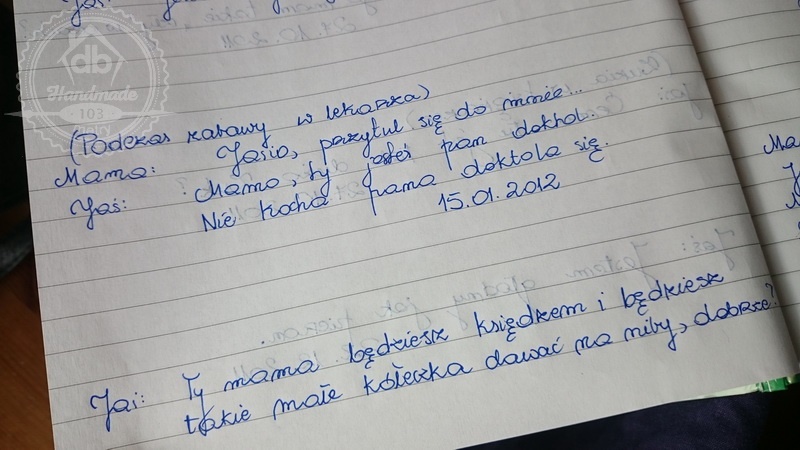 27.10.2011
db
Handmade
103
(Podczas zabawy w lekarza)
Mama: Jasio, przytul się do mnie...
Jaś: Mamo, ty jesteś pan dokhol.
Nie kocha pana doktola się.
15.01.2012
Jaś: Ty mama będziesz księdzem i będziesz
takie małe kółeczka dawać na niby, dobrze?
Ma